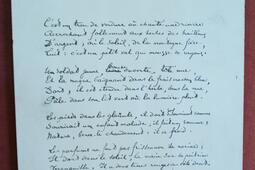 C'est un trou de verdure où chante une rivière
Accrochant follement aux herbes des haillons
D'argent; où le soleil, de la montagne fière,
Luit: c'est un petit val qui mousse de rayons.
Un soldat jeune, bouche ouverte, tête nue,
Et la nuque baignant dans le frais cresson bleu,
Dort; il est étendu dans l'herbe, sous la nue,
Pâle dans son lit vert où la lumière pleut.
Les pieds dans les glaïeuls, il dort. Souriant comme
Sourirait un enfant malade, il fait un somme:
Nature, berce-le chaudement: il a froid.
Les parfums ne font pas frissonner sa narine;
Il dort dans le soleil, la main sur sa poitrine
Tranquille. Il a deux trous rouges au côté droit.